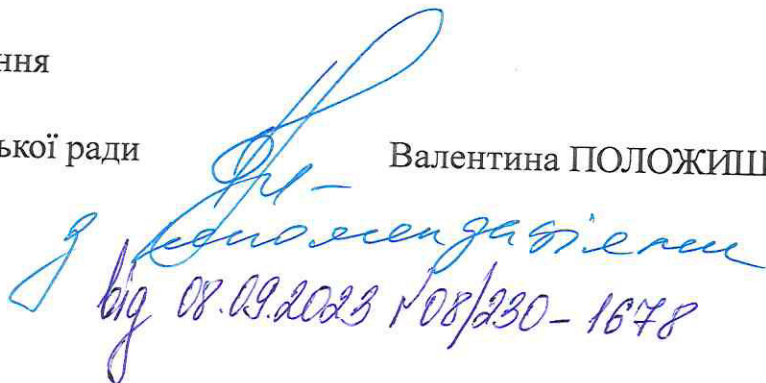 ння
ької ради Валентина ПОЛОЖИШ
з рекомендаціями
від 08.09.2023 №08/230-1678